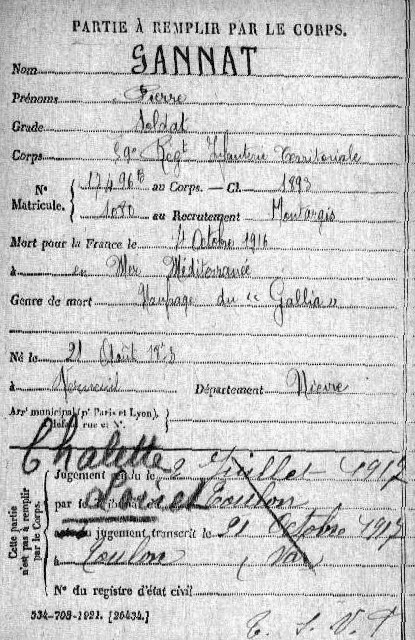 PARTIE À REMPLIR PAR LE CORPS.
Nom GANNAT
Prénoms Pierre
Grade Soldat
Corps Régt Infanterie Territoriale
N° Matricule. au Corps. — Cl. 1893
1080 au Recrutement Montargis
Mort pour la France le 4 Octobre 1916
à en Mer Méditerranée
Genre de mort Naufrage du "Gallia"
Né le 21 Août
à Département Nièvre
Arr' municipal (p' Paris et Lyon),
à défaut rue et N°.
Chalette
Jugement rendu le 2 Juillet 1917
par le Tribunal de Toulon
Loiret
jugement transcrit le 21 Octobre 1917
à Toulon (Var)
Cette partie n'est pas à remplir par le Corps.
N° du registre d'état civil
534-708-1921. [26434.]
T. S. V. P.